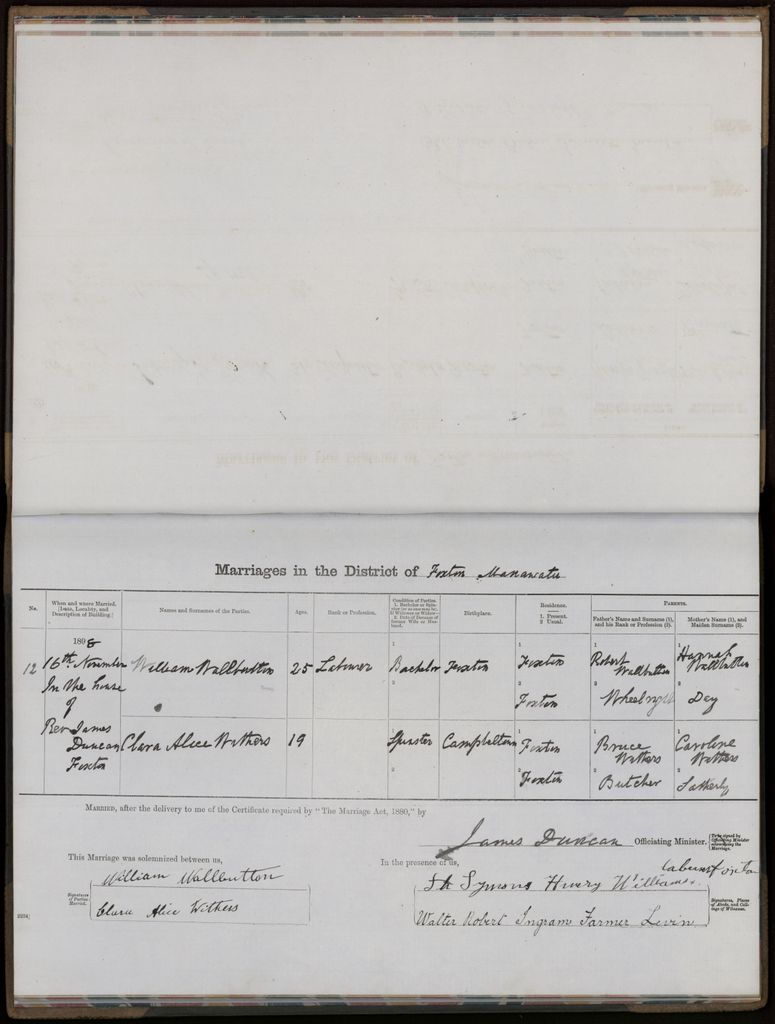 Marriages in the District of Foxton Manawatu
No.
When and where Married.
[Date, Locality, and
Description of Building.]
Names and Surnames of the Parties.
Ages.
Rank or Profession.
Condition of Parties.
1. Bachelor or Spinster
Birthplace.
Residence.
1. Present.
2. Usual.
PARENTS.
Father's Name and Surname (1),
and his Rank or Profession (2).
Mother's Name (1), and
Maiden Surname (2).
12
1898
16th November
In the house
of
Rev James
Duncan
Foxton
William Wallbutton
25
Labourer
1
Bachelor
2
Foxton
1
Foxton
2
Foxton
1
Robert
Wallbutton
2
Wheelwright
1
Hannah
Wallbutton
2
Day
Clara Alice Withers
19
1
Spinster
2
Campbeltown
1
Foxton
2
Foxton
1
Bruce
Withers
2
Butcher
1
Caroline
Withers
2
MARRIED, after the delivery to me of the Certificate required by "The Marriage Act, 1880," by
James Duncan Officiating Minister.
[To be signed by
Officiating Minister
Marriage.
This Marriage was solemnized between us,
In the presence of us,
Signatures
of Parties
Married.
William Wallbutton
Clara Alice Withers
Symons Henry Williams
Walter Robert Ingram Farmer Levin
Signatures, Places
of Abode, and Call-
ings of Witnesses.